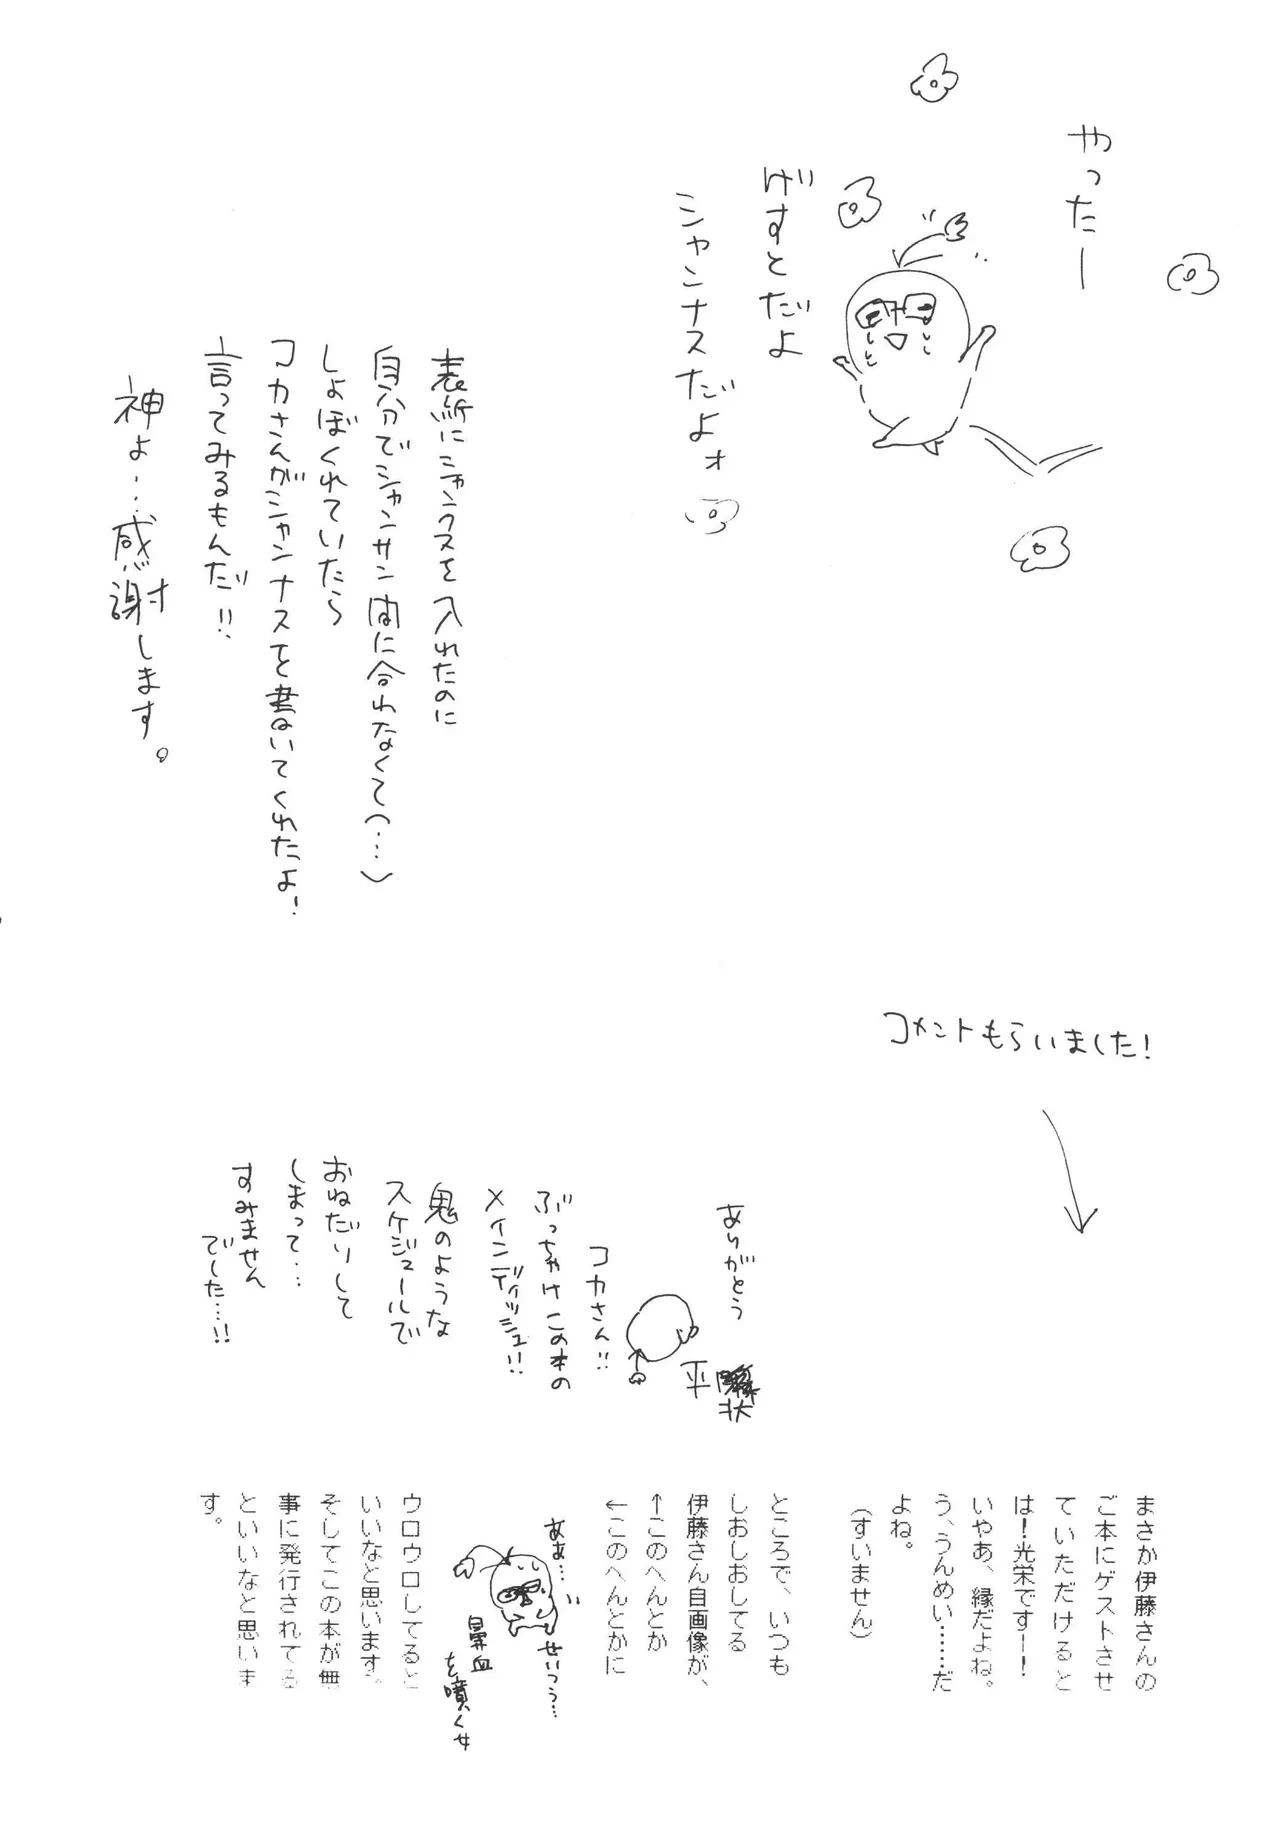 やったー
げすとだよ
シャンナスだよォ
表紙にシャンクスを入れたのに
自分でシャンサン間に合わなくて(…)
しょぼくれていたら
コカさんがシャンナスを書いてくれたよ!
言ってみるもんだ!!
神よ…感謝します。
コメントもらいました!
ありがとう
コカさん!!
ぶっちゃけこの本の
メインディッシュ!!
鬼のような
スケジュールで
おねだりして
しまって…
すみません
でした…!!
状
平
まさか伊藤さんの
ご本にゲストさせ
ていただけると
は!光栄ですー!
いやあ、縁だよね。
う、うんめい……だ
よね。
(すいません)
ところで、いつも
しおしおしてる
伊藤さん自画像が、
↑このへんとか
←このへんとかに
ああ…
せいつう…
鼻血
を噴く女
ウロウロしてると
いいなと思います。
そしてこの本が無
事に発行されてる
といいなと思いま
す。